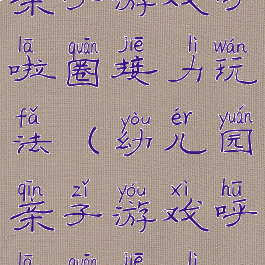 亲子游戏呼
lā quān jiē lì wán
啦圈接力玩
fǎ yòu ér yuán
法（幼儿园
qīn zǐ yóu xì hū
亲子游戏呼
lā quān jiē lì